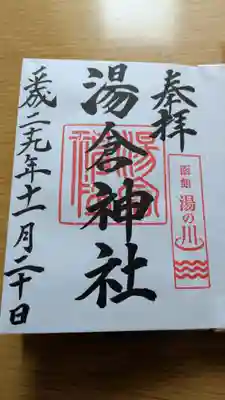 奉拝
函館
湯の川
湯倉神社
平成二十九年十一月二十日